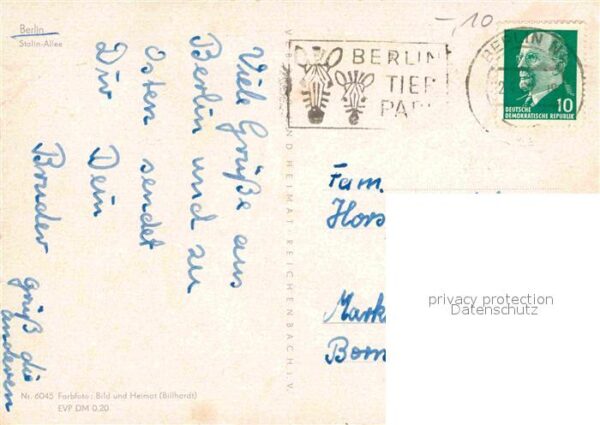 Berlin
Stalin-Allee
Viele Grüße aus
Berlin und zu
Osten sendet
Dir Dein
Bruder
grüß die
anderen
VERLAG BILD UND HEIMAT REICHENBACH I. V.
-,10
BERLIN
TIER
PARK
BERLIN N
DEUTSCHE
DEMOKRATISCHE REPUBLIK
10
Fam.
Hors
Mark
Born
privacy protection
Datenschutz
Nr. 6045 Farbfoto: Bild und Heimat (Billhardt)
EVP DM 0.20